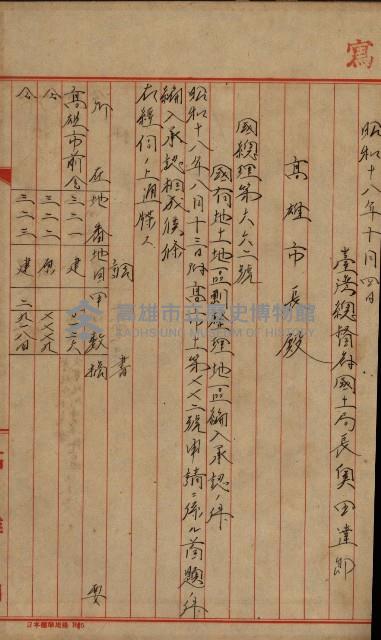 寫
昭和十八年十月四日
臺灣總督府國土局長奧田達郎
高雄市長殿
國總理第六六二號
國有地土地區劃整理地區編入承認ノ件
昭和十八年八月十三日附高土第七七二號申請ニ係ル首題ノ件
編入承認相成候條
右經伺ノ上通牒ス
記
所在地番地目甲數摘要
高雄市前金三二一建
仝三二二原
仝三二三建
高雄市立歷史博物館
KAOHSIUNG MUSEUM OF HISTORY